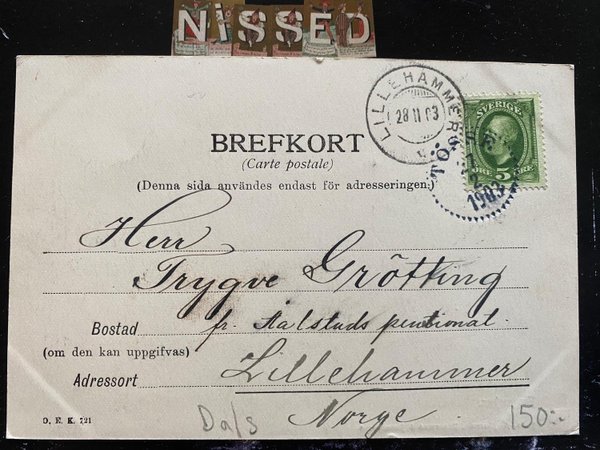 NiSSED
LILLEHAMMER
28 II 03
SVERIGE
5
ÖRE
TÖS
1903
BREFKORT
(Carte postale)
(Denna sida användes endast för adresseringen.)
Herr
Trygve Grötting
Bostad
fr.
(om den kan uppgifvas)
Lillehammer
Adressort
Norge.
D. E. K. 721
Dals
150:-